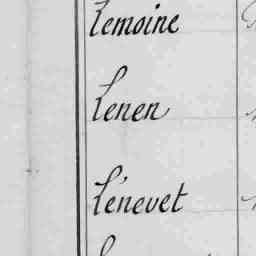 Lemoine
Lenen
Lénevet